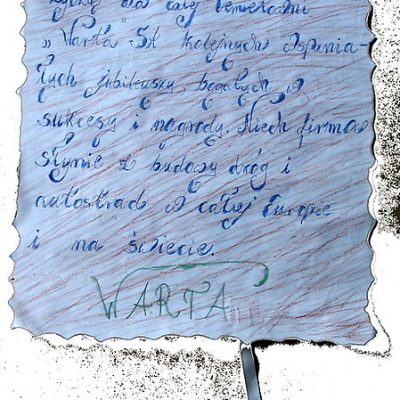 życzę dla całej
„Warta" SA kolejnych wspania-
łych jubileuszy, bogatych w
sukcesy i nagrody. Niech firma
słynie z budowy dróg i
autostrad w całej Europie
i na świecie.
WARTA